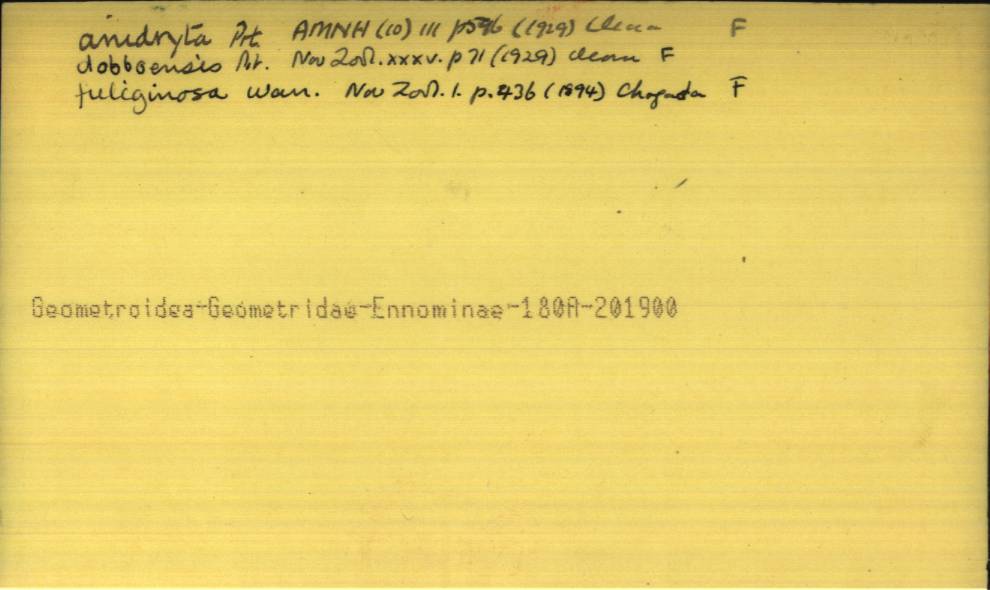 anidryta Prt. AMNH (10) III p596 (1929) Cleora F
dobboensis Prt. Nov Zool. xxxv. p 71 (1929) Cleora F
fuliginosa Warr. Nov Zool. 1. p. 436 (1894) Chogada F
Geometroidea-Geometridae-Ennominae-180A-201900